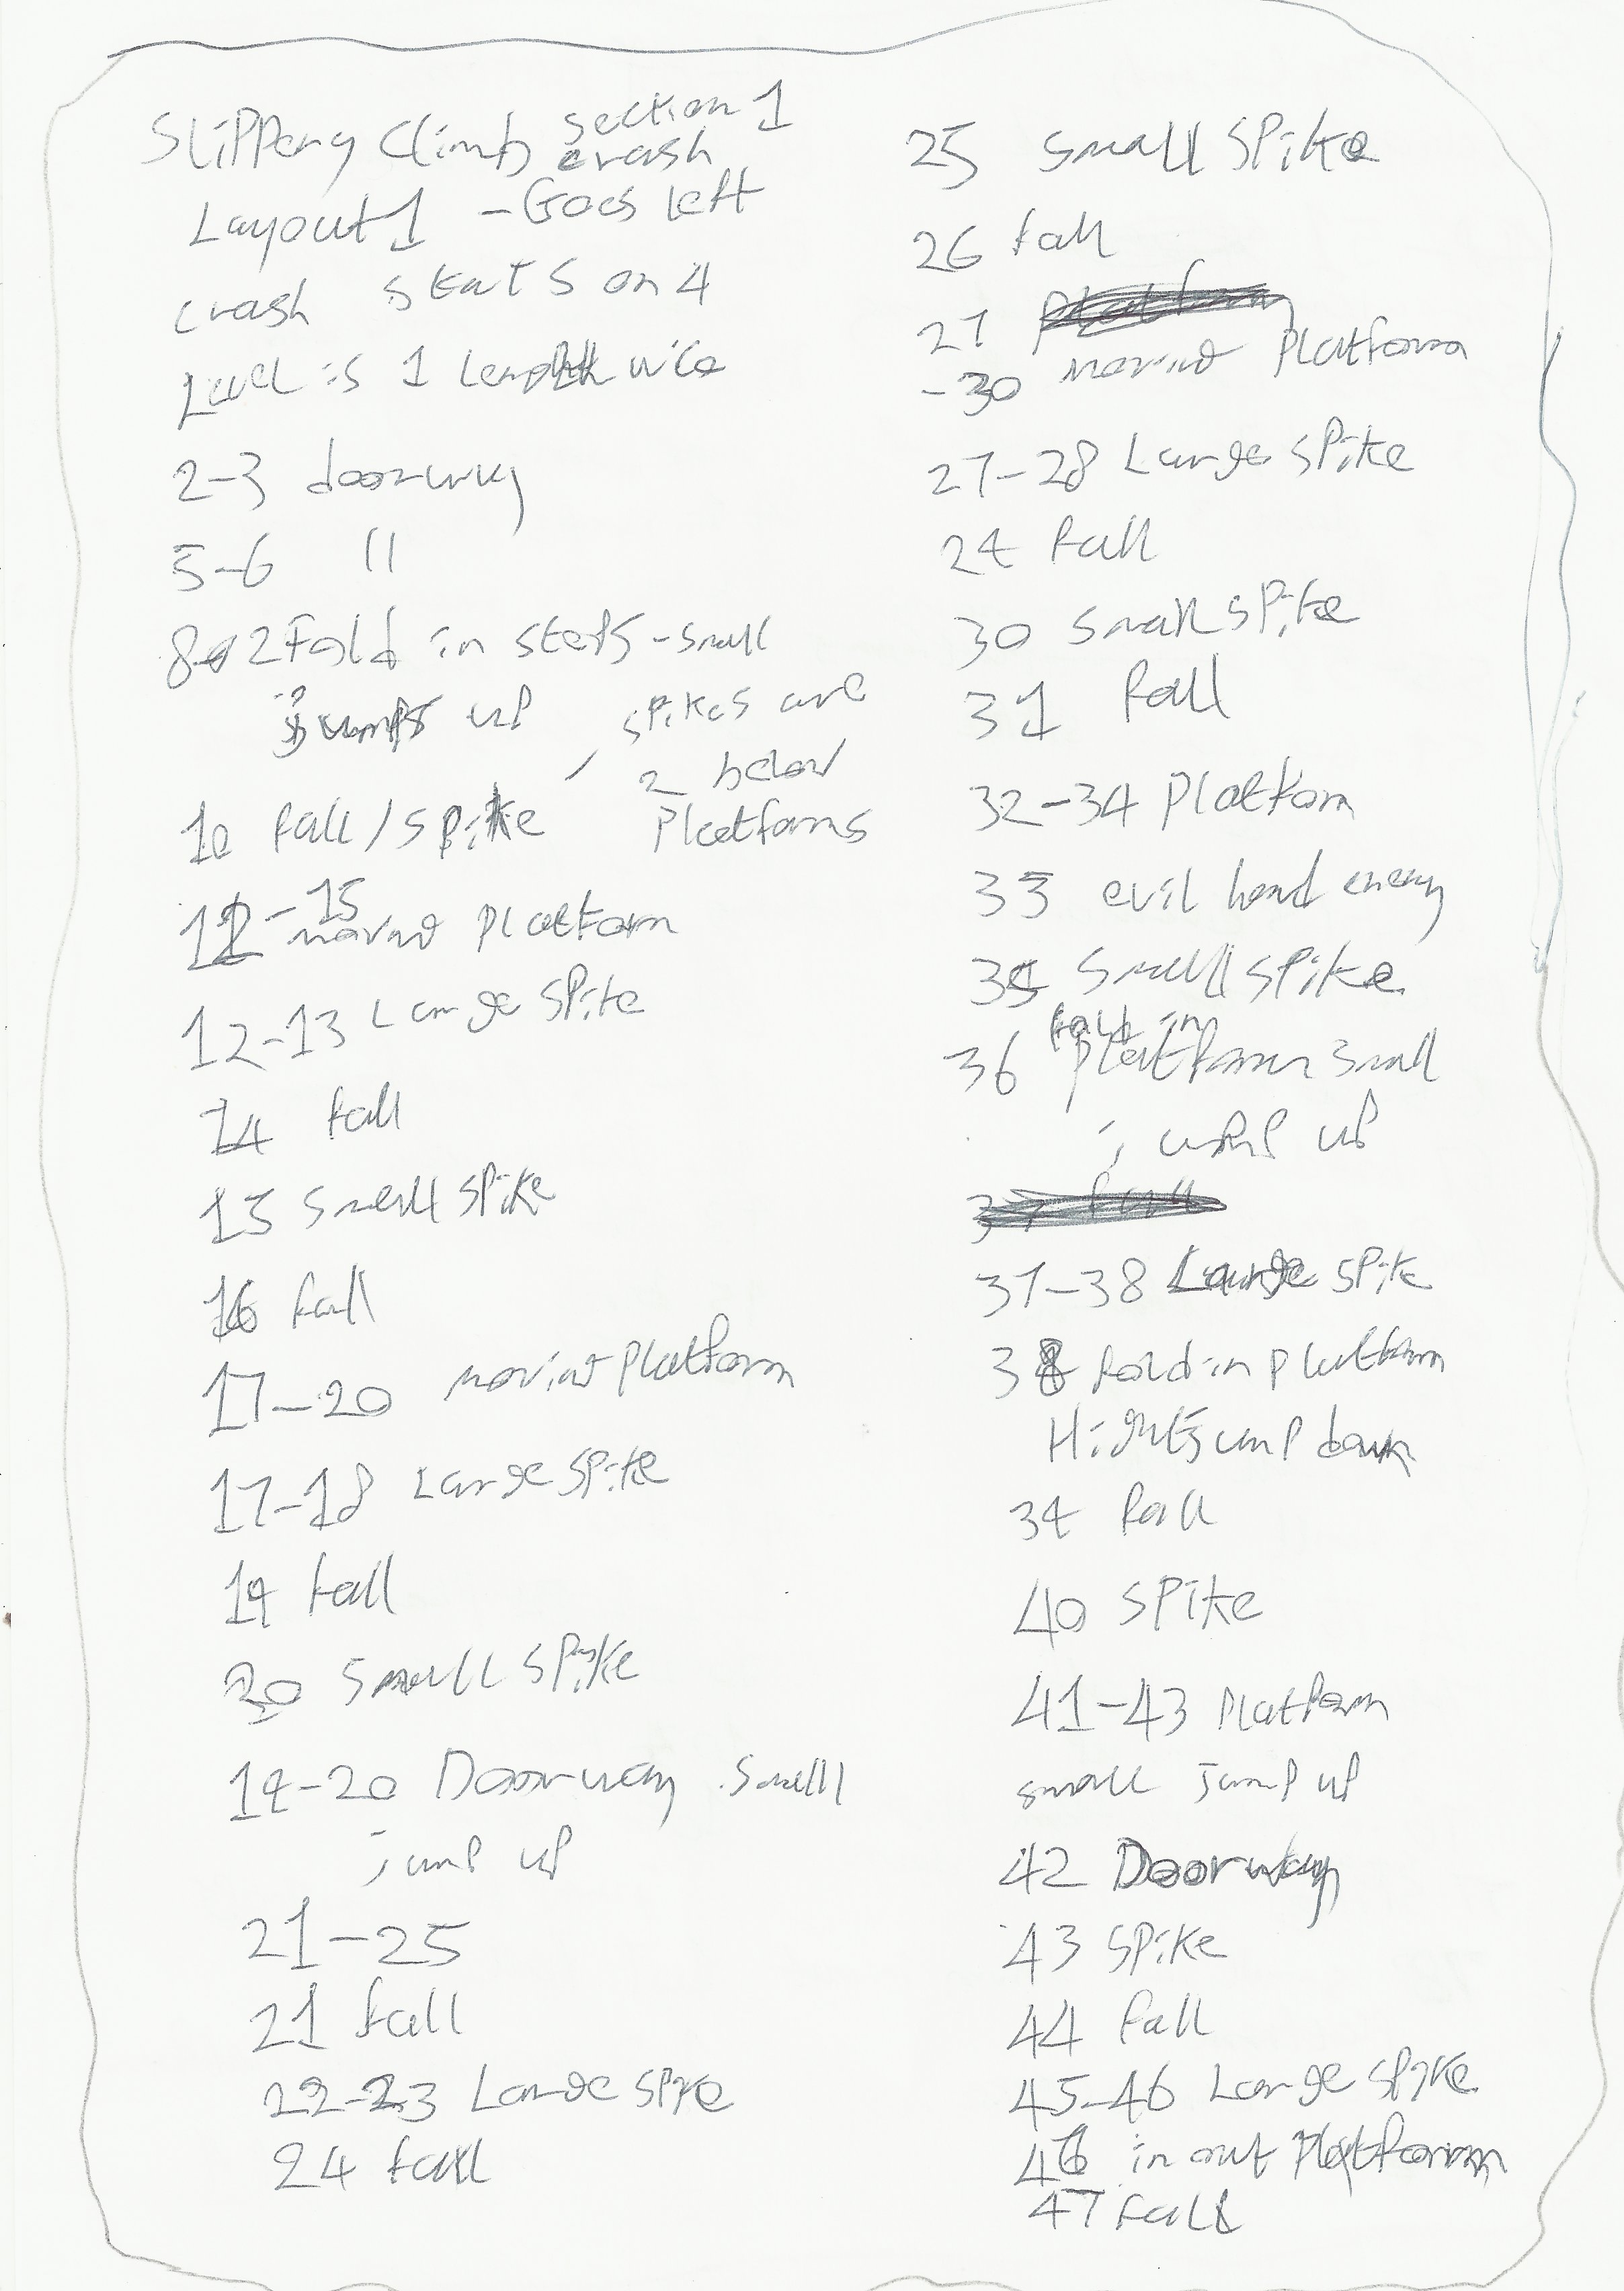 Slippery Climb section 1
crash
Layout 1 - Goes left
crash starts on 4
Level is 1 length wice
2-3 doorway
5-6 11
8 2 Fold in steps - small
jumps up spikes are
2 below
10 fall / spike Platforms
12-15
moving Platform
12-13 Large spike
14 fall
15 small spike
16 fall
17-20 moving Platform
17-18 Large spike
19 fall
20 small spike
19-20 Doorway small
jump up
21-25
21 fall
22-23 Large spike
24 fall
25 small spike
26 fall
27
-30 moving Platform
27-28 Large spike
29 fall
30 small spike
31 fall
32-34 Platform
33 evil hand enemy
35 small spike
fold in
36 Platform small
jump up
37-38 Large spike
38 fold in platform
Hight jump down
39 fall
40 spike
41-43 Platform
small jump up
42 Doorway
43 spike
44 fall
45-46 Large spike
46 in out Platform
47 fall